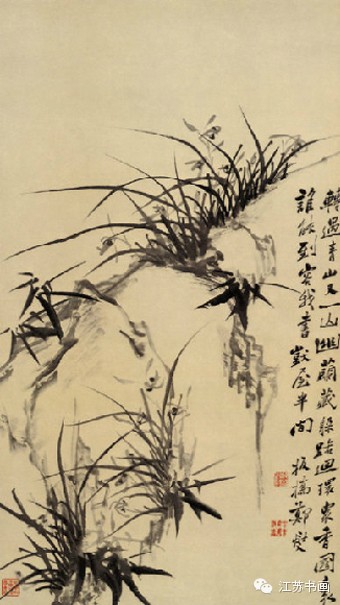 轉過青山又一山幽蘭藏躲路迴環衆香國裏
誰能到容我書獃屋半間 板橋鄭燮
江苏书画